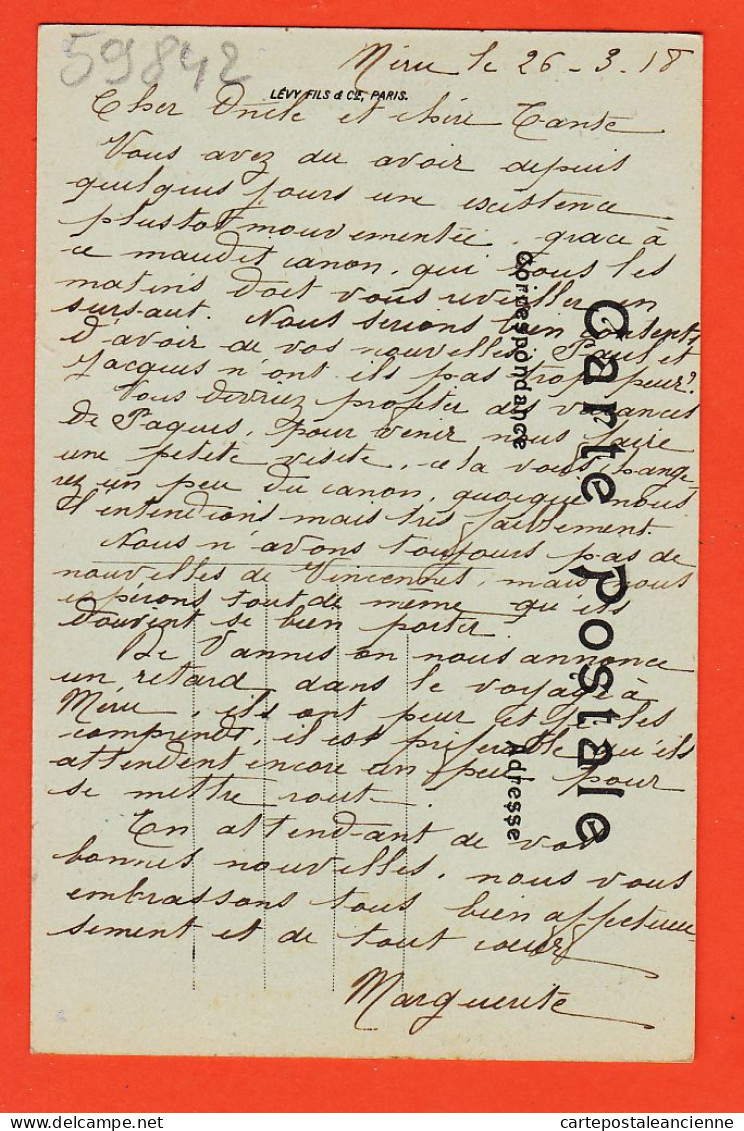 59842
Méru le 26-3-18
LÉVY FILS & Cie, PARIS.
Cher Oncle et chère Tante
Vous avez du avoir depuis
quelques jours une existence
plustot mouvementée, grace à
ce maudit canon, qui tous les
matins doit vous réveiller en
sursaut. Nous serions bien contents
d'avoir de vos nouvelles, Paul et
Jacques n'ont ils pas trop peur?
Vous devriez profiter des vacances
de Paques, pour venir nous faire
une petite visite, cela vous change
rez un peu du canon, quoique nous
l'entendions mais très faiblement.
Nous n'avons toujours pas de
nouvelles de Vincennes, mais nous
espérons tout de même qu'ils
doivent se bien porter.
De Vannes on nous annonce
un retard, dans le voyage à
Méru, ils ont peur et je les
comprends, il est préférable qu'ils
attendent encore un peu pour
se mettre rout.
En attendant de vos
bonnes nouvelles, nous vous
embrassons tous bien affectueu-
sement et de tout cœur
Marguerite
Carte Postale
Correspondance
Adresse
cartepostaleancienne